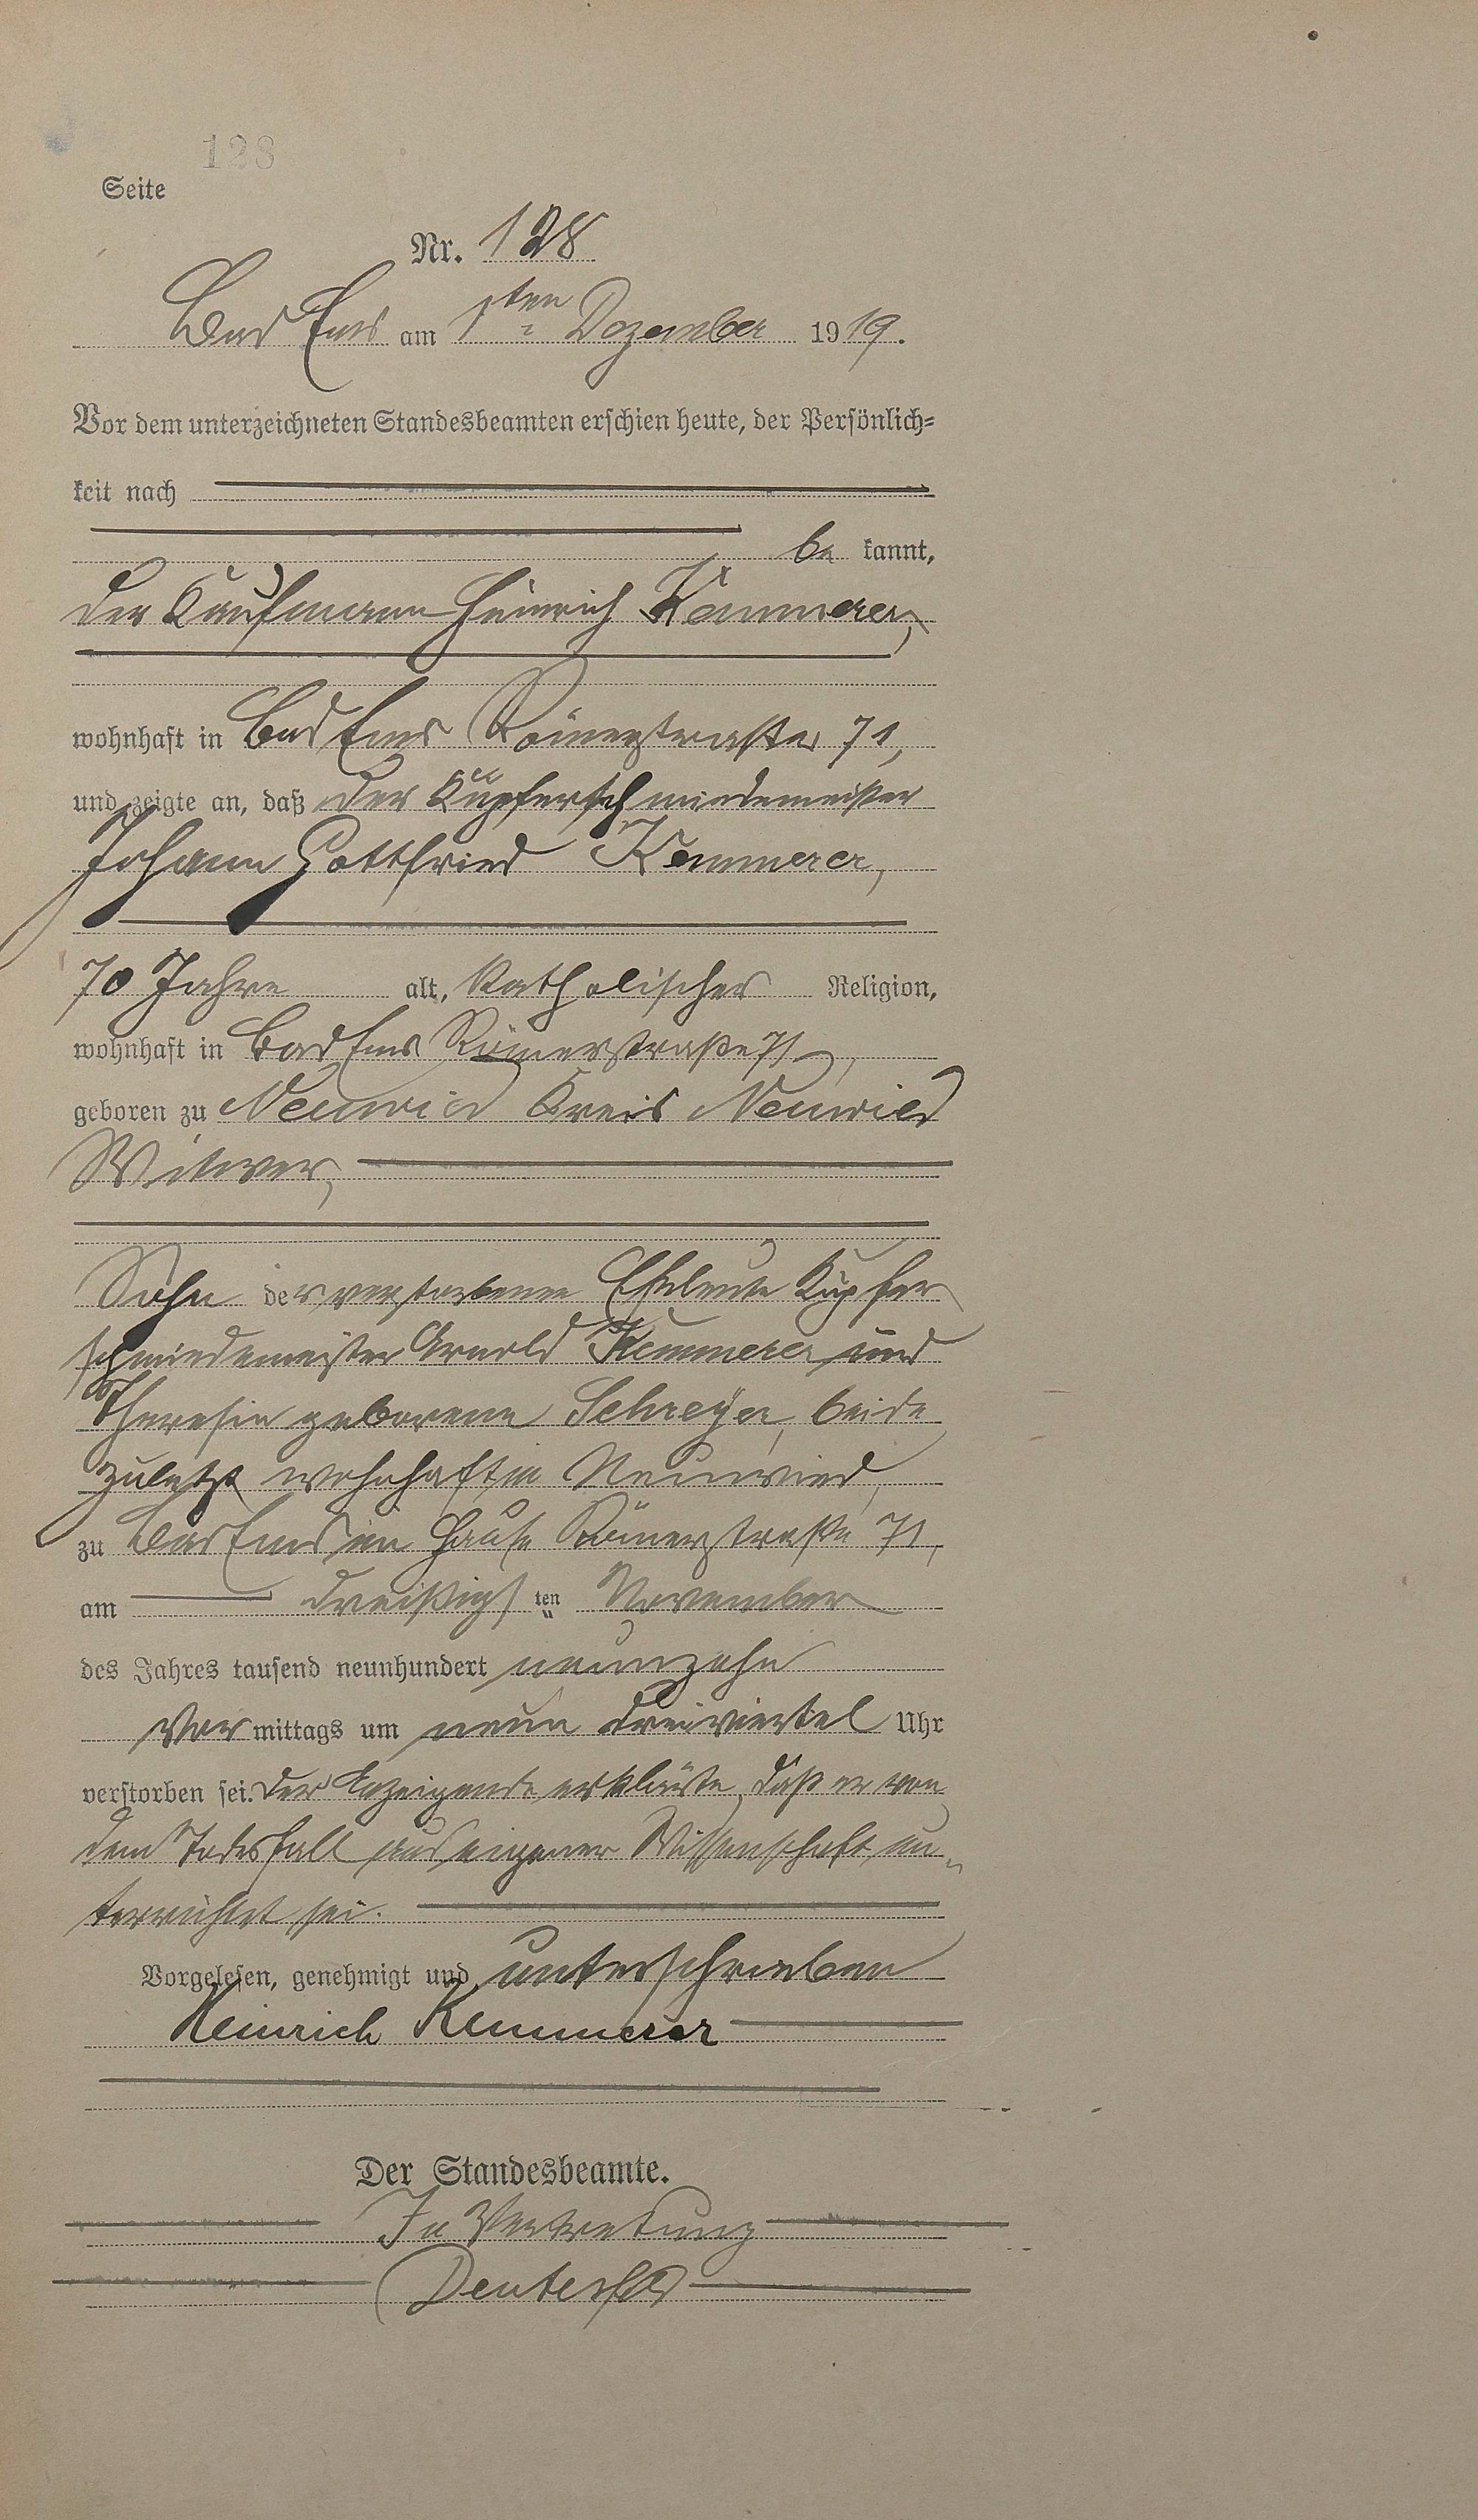 128
Seite
Nr. 128
Bad Ems am 1ten Dezember 1919.
Vor dem unterzeichneten Standesbeamten erschien heute, der Persönlich=
keit nach
be kannt,
der Kaufmann Heinrich Kemmerer,
wohnhaft in Bad Ems Römerstraße 71,
und zeigte an, daß der Kupferschmiedemeister
Johann Gottfried Kemmerer,
70 Jahre alt, katholischer Religion,
wohnhaft in Bad Ems Römerstraße 71,
geboren zu Neuwied Kreis Neuwied
Witwer,
Sohn der verstorbenen Eheleute Kupfer
schmiedemeister Arnold Kemmerer und
Theresia geborene Schreyer, beide
zuletzt wohnhaft in Neuwied,
zu Bad Ems im Hause Römerstraße 71,
am dreißigsten November
des Jahres tausend neunhundert neunzehn
Vor mittags um neun dreiviertel Uhr
verstorben sei. Der Anzeigende erklärte, daß er von
dem Todesfall aus eigener Wissenschaft un=
terrichtet sei.
Vorgelesen, genehmigt und unterschrieben
Heinrich Kemmerer
Der Standesbeamte.
In Vertretung